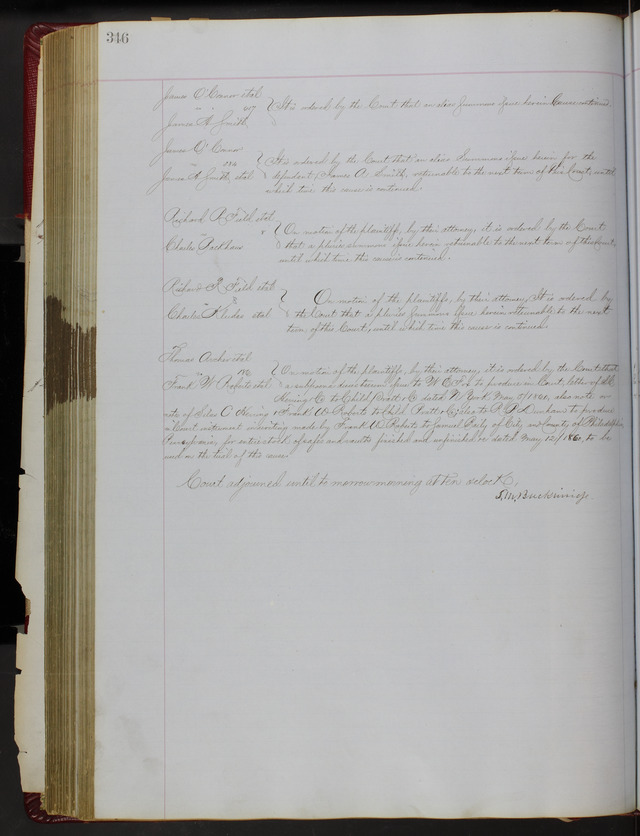 346
James O'Connor etal
It is ordered by the Court that an alias Summons issue herein Cause continued
James A Smith
James O'Connor
It is ordered by the Court that an alias Summons issue herein for the
James A Smith etal defendant, James A. Smith, returnable to the next term of this Court, until
which time this cause is continued.
Richard R. Field etal
On motion of the plaintiffs, by their attorney, it is ordered by the Court
Charles that a pluries summons issue herein returnable to the next term of this Court,
until which time this cause is continued.
Richard R. Field etal
On motion of the plaintiffs, by their attorney, It is ordered by
Charles etal the Court that a pluries Summons issue herein returnable to the next
term of this Court, until which time this cause is continued
Thomas etal
On motion of the plaintiffs, by their attorney, it is ordered by the Court that
Frank W Roberts etal a subpoena duces tecum issue to W to produce in Court, letter of
Herring & Co to Child Pratt & Co dated N York May 1860, also note
of Silas C Herring & Frank W Roberts to Child Pratt & Co; also to to produce
in Court made by Frank W. Roberts to of City and County of Philadelphia
for entire stock of safes and vaults finished and unfinished dated May 12/1860, to be
used on the trial of this cause.
Court adjourned until to morrow morning at Ten oclock,